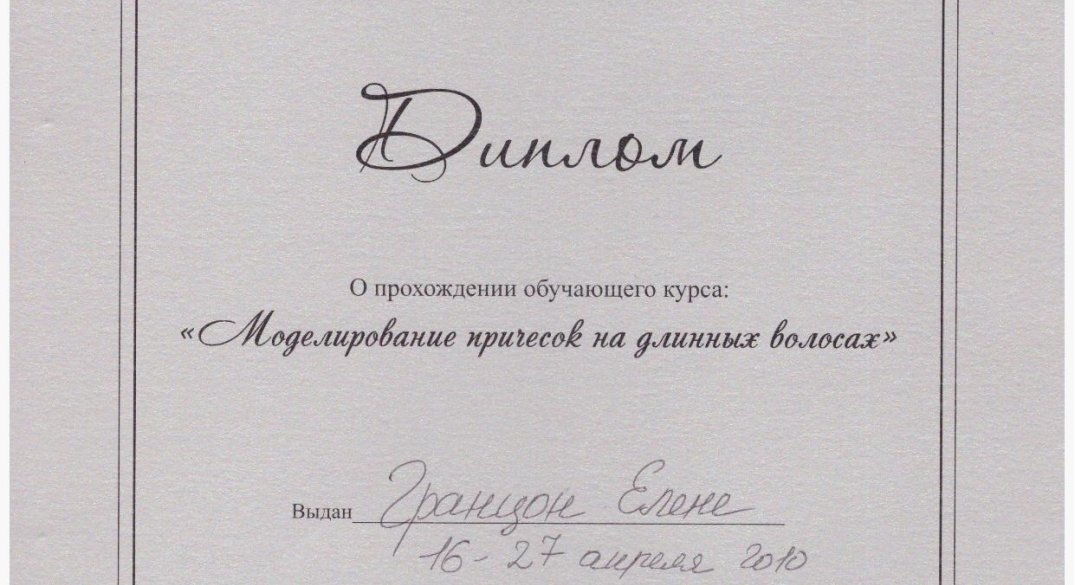 Диплом
О прохождении обучающего курса:
«Моделирование причесок на длинных волосах»
Выдан Гранцон Елене
16-27 апреля 2010